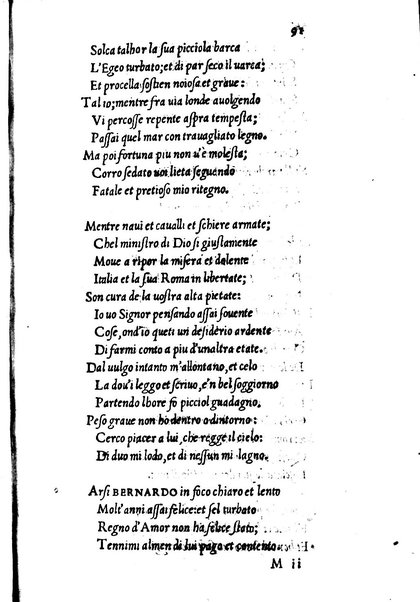 91
Solca talhor la sua picciola barca
L'Egeo turbato; et di par seco il uarca;
Et procella sosten noiosa et graue:
Tal io; mentre fra uia londe auolgendo
Vi percosse repente aspra tempesta;
Passai quel mar con trauagliato legno.
Ma poi fortuna piu non u'è molesta;
Corro sedato uoi lieta seguendo
Fatale et pretioso mio ritegno.
Mentre naui et caualli et schiere armate;
Chel ministro di Dio si giustamente
Moue a ripor la misera et dolente
Italia et la sua Roma in libertate;
Son cura de la uostra alta pietate:
Io uo Signor pensando assai souente
Cose, ond'io queti un desiderio ardente
Di farmi conto a piu d'unaltra etate.
Dal uulgo intanto m'allontano, et celo
La dou'i leggo et scriuo, e'n bel soggiorno
Partendo lhore fo picciol guadagno.
Peso graue non ho dentro o dintorno:
Cerco piacer a lui, che regge il cielo:
Di duo mi lodo, et di nessun mi lagno.
Arsi BERNARDO in foco chiaro et lento
Molt'anni assai felice: et sel turbato
Regno d'Amor non ha felice stato;
Tennimi almen di lui pago et contento.
M ii